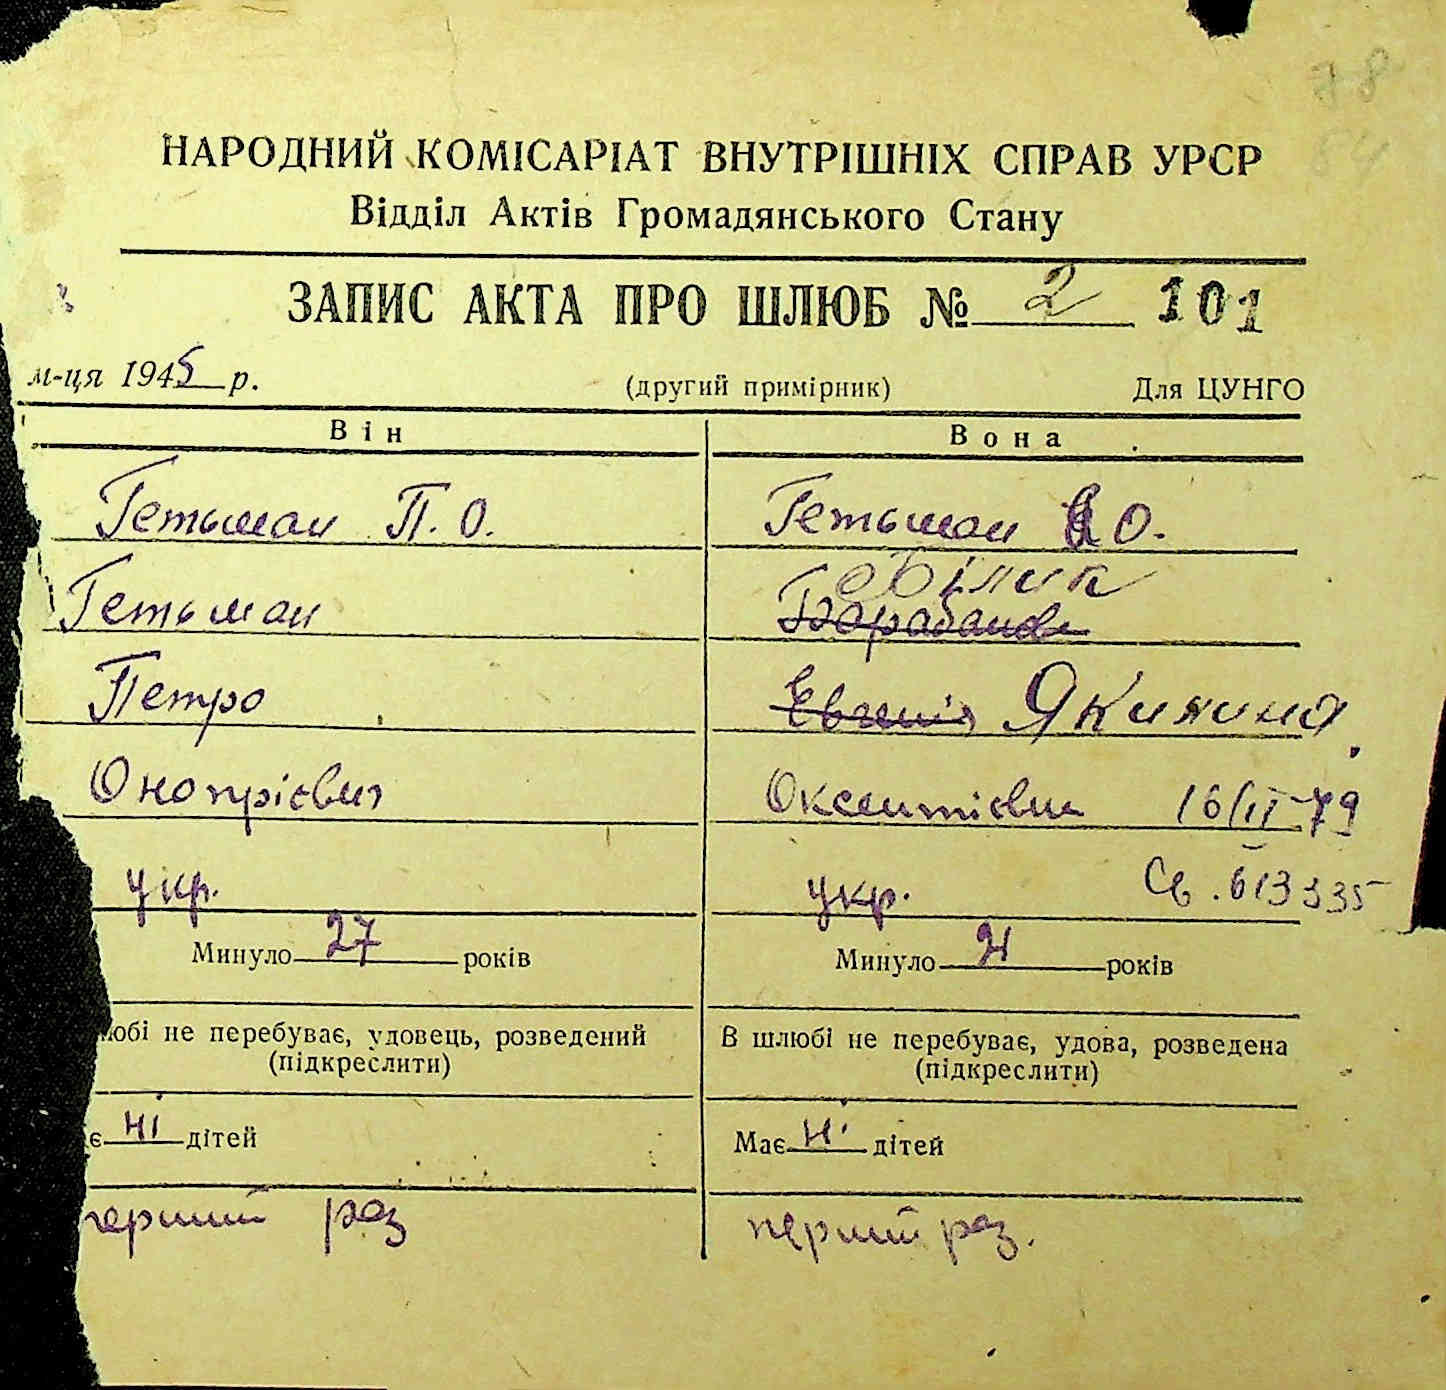 78
НАРОДНИЙ КОМІСАРІАТ ВНУТРІШНІХ СПРАВ УРСР
Відділ Актів Громадянського Стану
ЗАПИС АКТА ПРО ШЛЮБ № 2 101
м-ця 1945 р. (другий примірник) Для ЦУНГО
Він Вона
Гетьман П. О. Гетьман О.
Білик
Гетьман Барабаново
Петро Євгенія Якилина
Онопрієвич Оксентієвна 16/II-79
укр. укр. Св. 613335
Минуло 27 років Минуло 21 років
любі не перебуває, удовець, розведений В шлюбі не перебуває, удова, розведена
(підкреслити) (підкреслити)
є ні дітей Має ні дітей
перший раз перший раз.